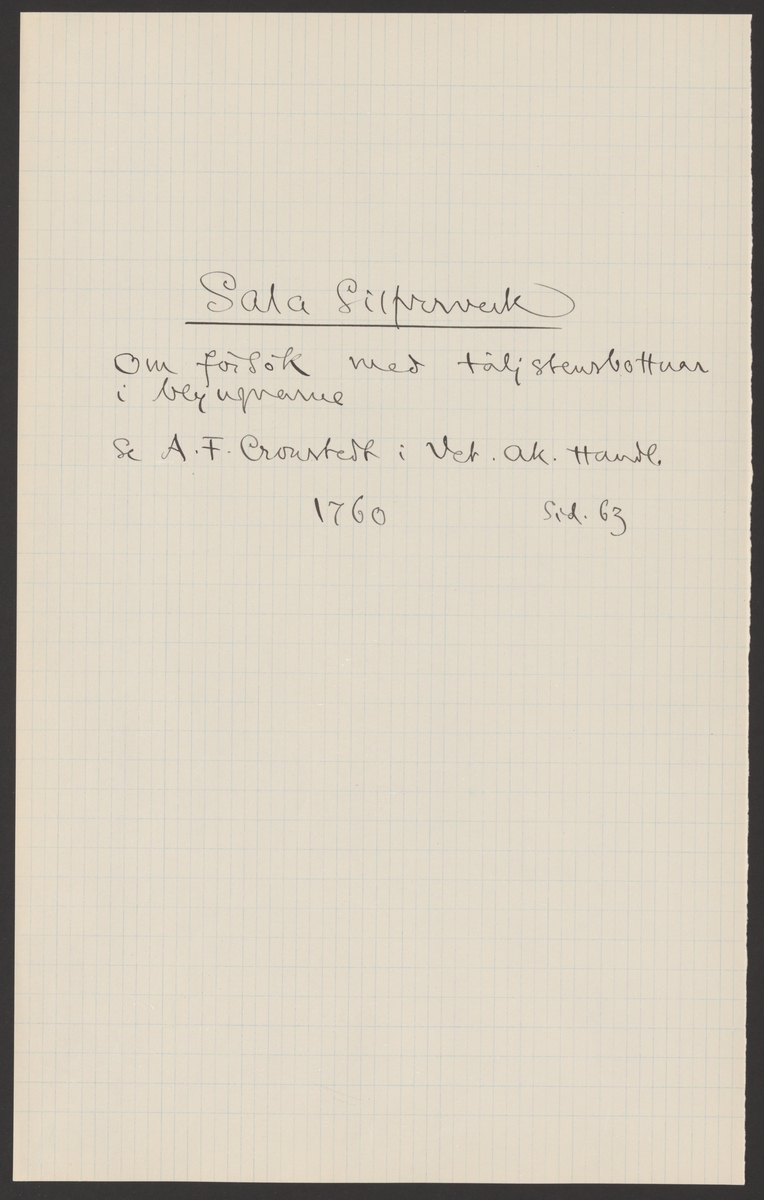 Sala Silfververk
Om försök med täljstensbottnar
i blyugnarne
Se A. F. Cronstedt i Vet. Ak. Handl.
1760 Sid. 63